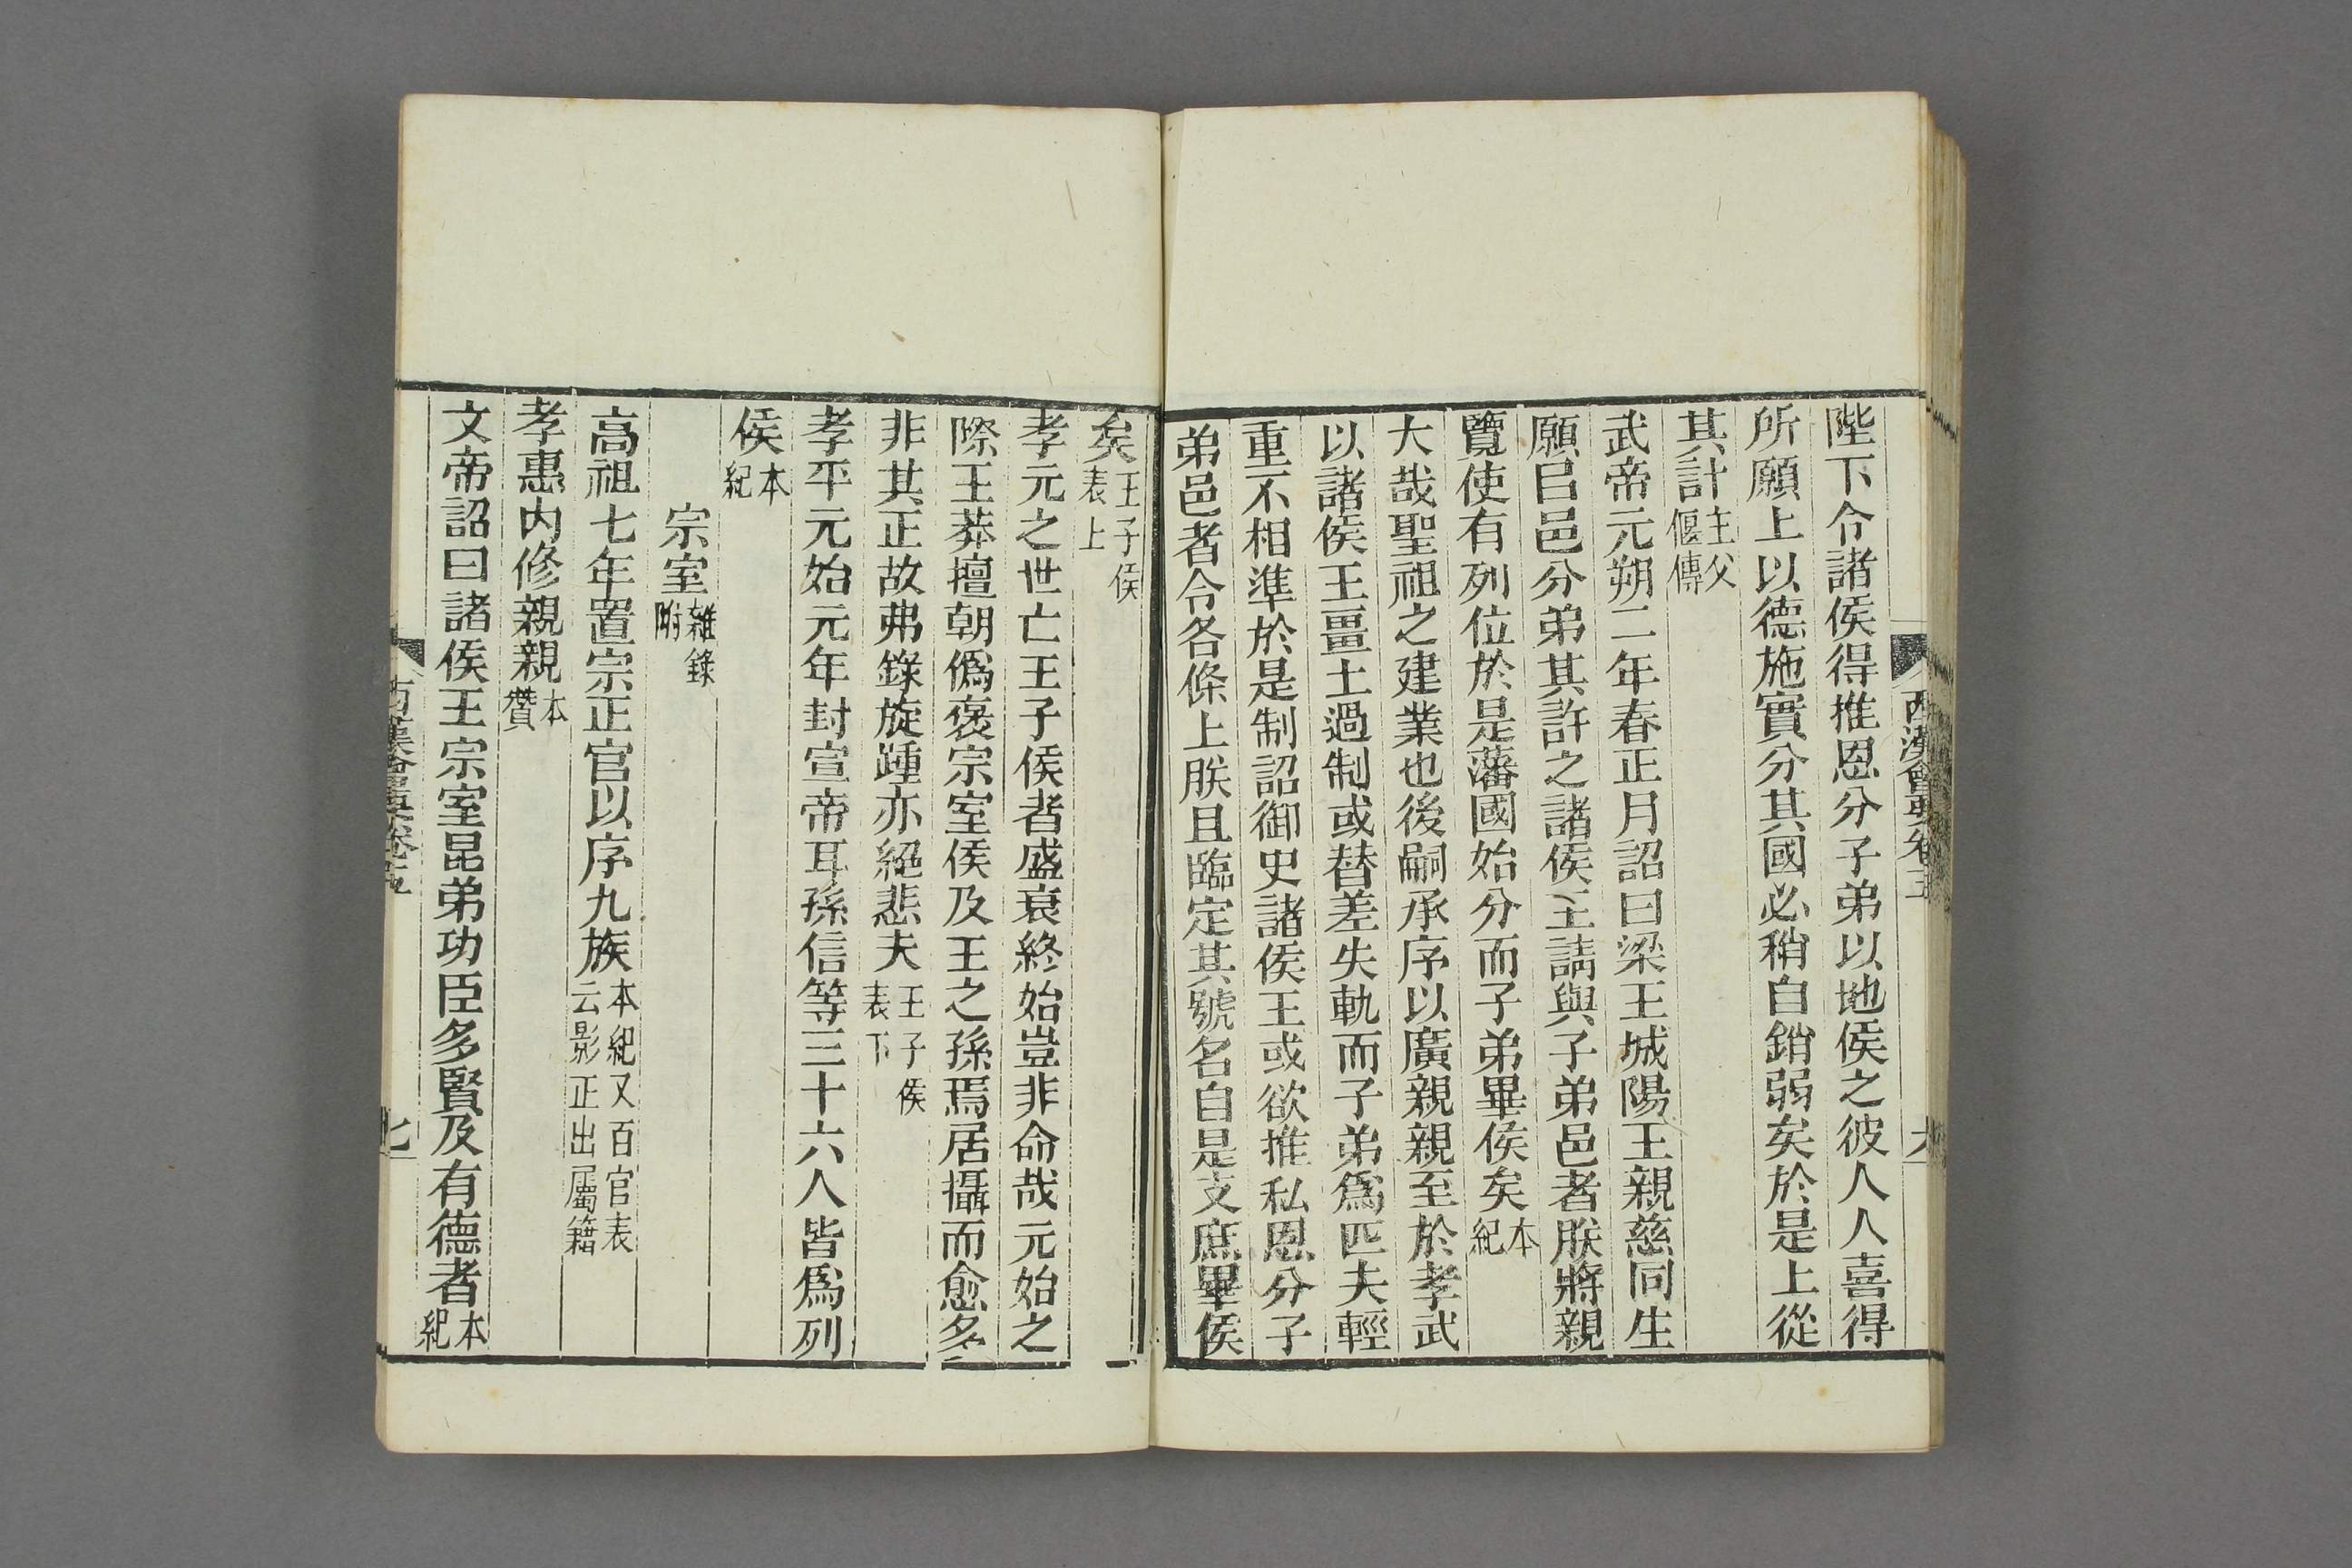 西漢會要卷五
六
陛下令諸侯得推恩分子弟以地侯之彼人人喜得
所願上以德施實分其國必稍自銷弱矣於是上從
其計主父偃傳
武帝元朔二年春正月詔曰梁王城陽王親慈同生
願㠯邑分弟其許之諸侯王請與子弟邑者朕將親
覽使有列位於是藩國始分而子弟畢侯矣本紀
大哉聖祖之建業也後嗣承序以廣親親至於孝武
以諸侯王畺土過制或替差失軌而子弟爲匹夫輕
重不相準於是制詔御史諸侯王或欲推私恩分子
弟邑者令各條上朕且臨定其號名自是支庶畢侯
矣王子侯表上
孝元之世亡王子侯者盛衰終始豈非命哉元始之
際王莽擅朝僞褒宗室侯及王之孫焉居攝而愈多
非其正故弗錄旋踵亦絕悲夫王子侯表下
孝平元始元年封宣帝耳孫信等三十六人皆爲列
侯本紀
宗室雜錄附
高祖七年置宗正官以序九族本紀又百官表云影正出屬籍
孝惠内修親親本贊
文帝詔曰諸侯王宗室昆弟功臣多賢及有德者本紀
西漢會要卷五
七